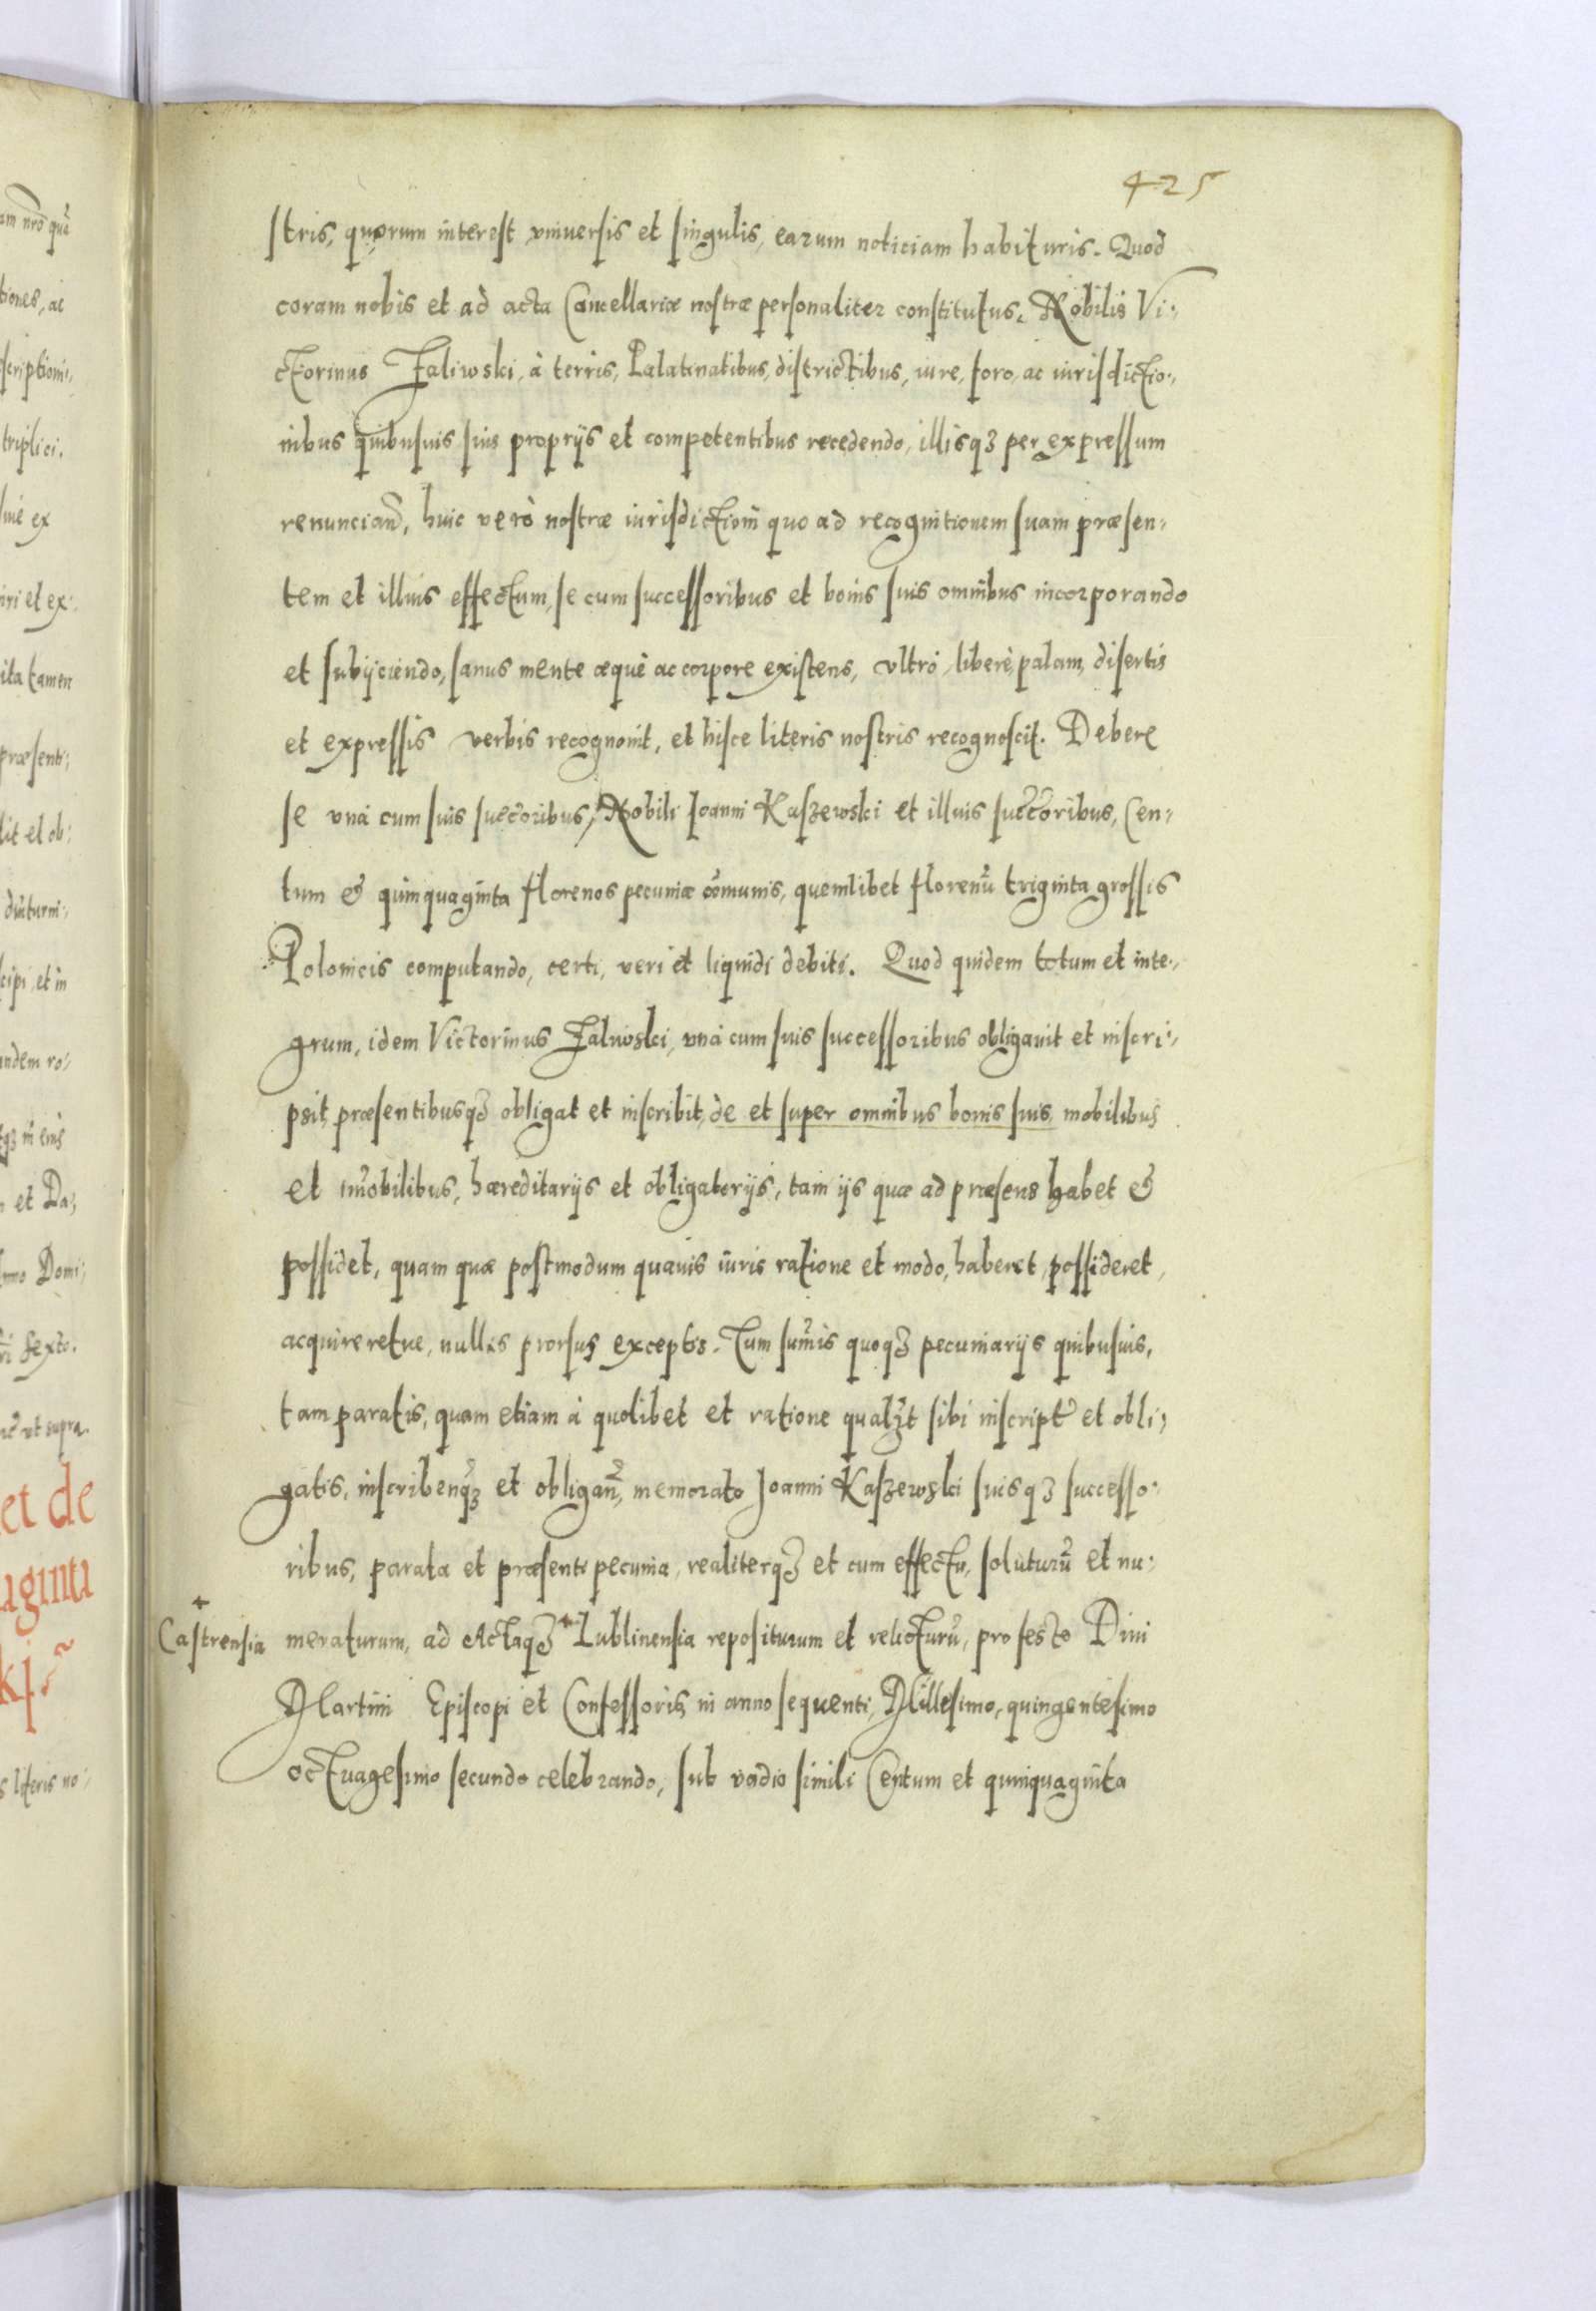 425
stris, quorum interest vniuersis et singulis, earum noticiam habituris. Quod
coram nobis et ad acta Cancellariæ nostræ personaliter constitutus, Nobilis Vi-
ctorinus Zaliwski, à terris, Palatinatibus, districtibus, iure, foro, ac iurisdictio-
nibus quibusuis suis proprijs et competentibus recedendo, illisqꝫ per expressum
renunciañd, huic verò nostræ iurisdictioni quo ad recognitionem suam præsen-
tem et illius effectum, se cum successoribus et bonis suis omnibus incorporando
et subijciendo, sanus mente æquè ac corpore existens, vltrò, liberè, palam, disertis
et expressis verbis recognouit, et hisce literis nostris recognoscit. Debere
se vnà cum suis succoribus, Nobili Joanni Kaszewski et illius succoribus, Cen-
tum & quinquaginta florenos pecuniæ cõmunis, quemlibet florenũ triginta grossis
Polonicis computando, certi, veri et liquidi debiti. Quod quidem totum et inte-
grum, idem Victorinus Zaliwski, vnà cum suis successoribus obligauit et inscri-
psit, præsentibusqꝫ obligat et inscribit, de et super omnibus bonis suis, mobilibus
et im̃obilibus, hæreditarijs et obligatorijs, tam ijs quæ ad præsens habet &
possidet, quam quæ postmodum quauis iuris ratione et modo, haberet, possideret,
acquireretue, nullis prorsus exceptis. Tum sum̃is quoqꝫ pecuniarijs quibusuis,
tam paratis, quam etiam à quolibet et ratione qualꝫt sibi inscript̃ et obli-
gatis, inscribenqꝫ et obligañ, memorato Joanni Kaszewski suisqꝫ successo-
ribus, parata et præsenti pecunia, realiterqꝫ et cum effectu, soluturũ et nu-
Castrensia meraturum, ad Actaqꝫ Lublinensia repositurum et relicturũ, pro festo Diui
Martini Episcopi et Confessoris, in anno sequenti, Millesimo, quingentesimo
octuagesimo secundo celebrando, sub vadio simili Centum et quinquaginta